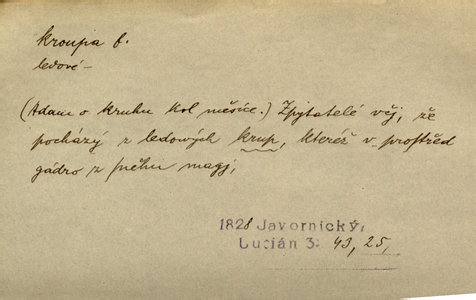 kroupa f.
ledové –
(Adam o kruhu kol měsíce.) Zpytatelé věj, že
pocházý z ledowých krup, kteréž v prostřed
gádro z sněhu magj,
1828 Javornický,
Lucián 3. 43, 25,